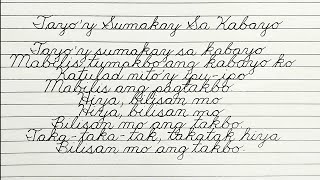 Tayo'y Sumakay Sa Kabayo
Tayo'y sumakay sa kabayo
Mabilis tumakbo ang kabayo ko
Katulad nito'y ipu-ipo
Mabilis ang pagtakbo
Hiya, bilisan mo
Hiya, bilisan mo
Bilisan mo ang takbo.
Taka-taka-tak, takatak hiya
Bilisan mo ang takbo.